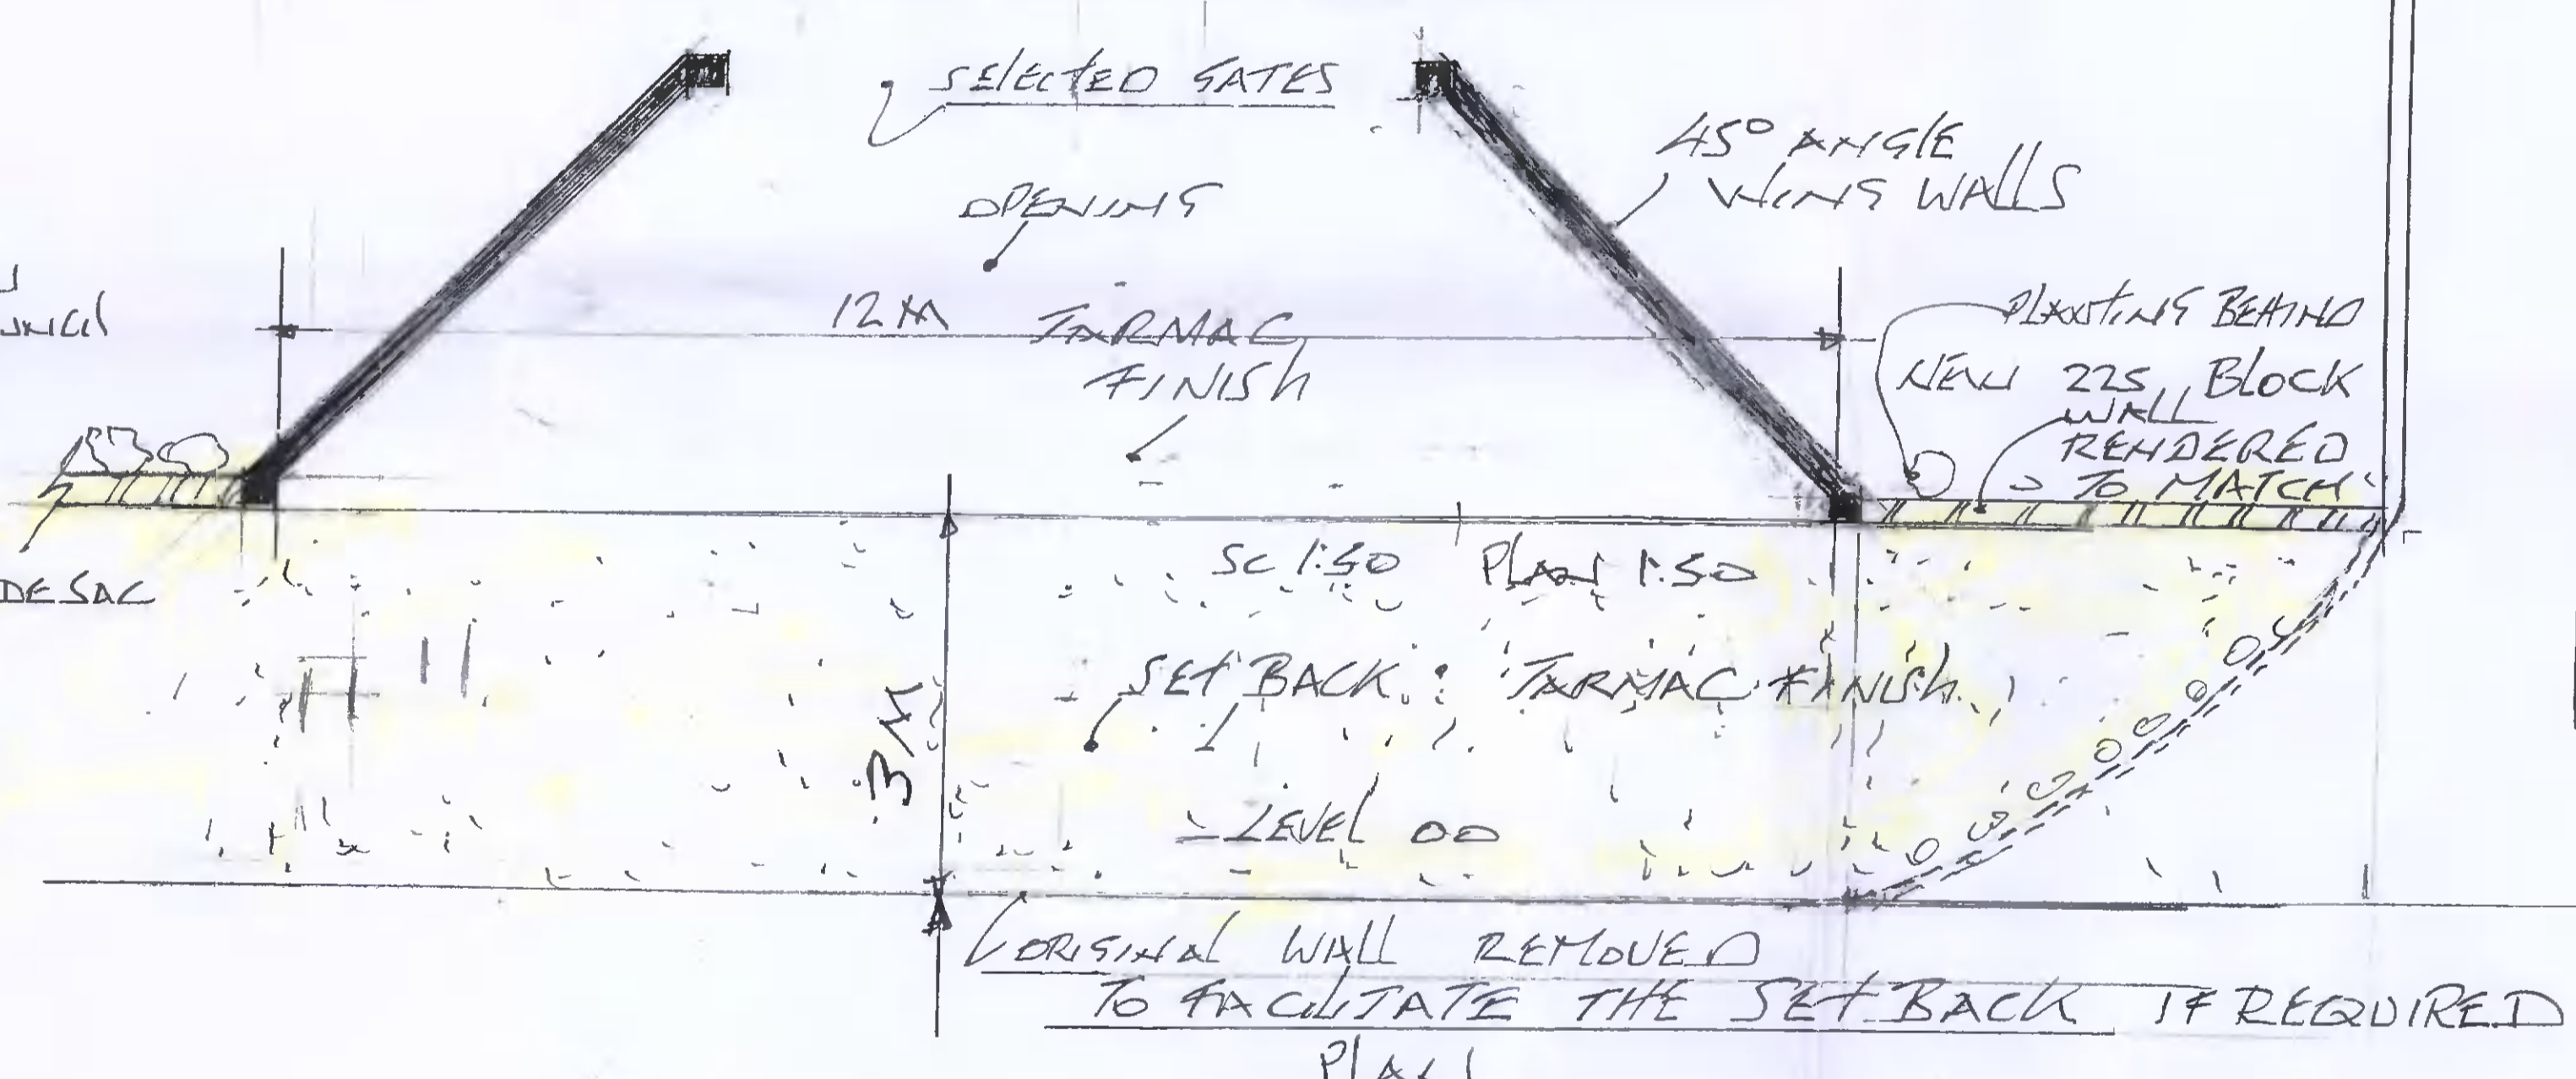 SELECTED GATES
45° ANGLE
WING WALLS
OPENING
12 M
TARMAC
FINISH
PLANTING BEHIND
NEW 225 BLOCK
WALL
RENDERED
TO MATCH
DE SAC
SC 1:50 PLAN 1:50
SET BACK : TARMAC FINISH
3 M
LEVEL OO
ORIGINAL WALL REMOVED
TO FACILITATE THE SET BACK IF REQUIRED
PLAN